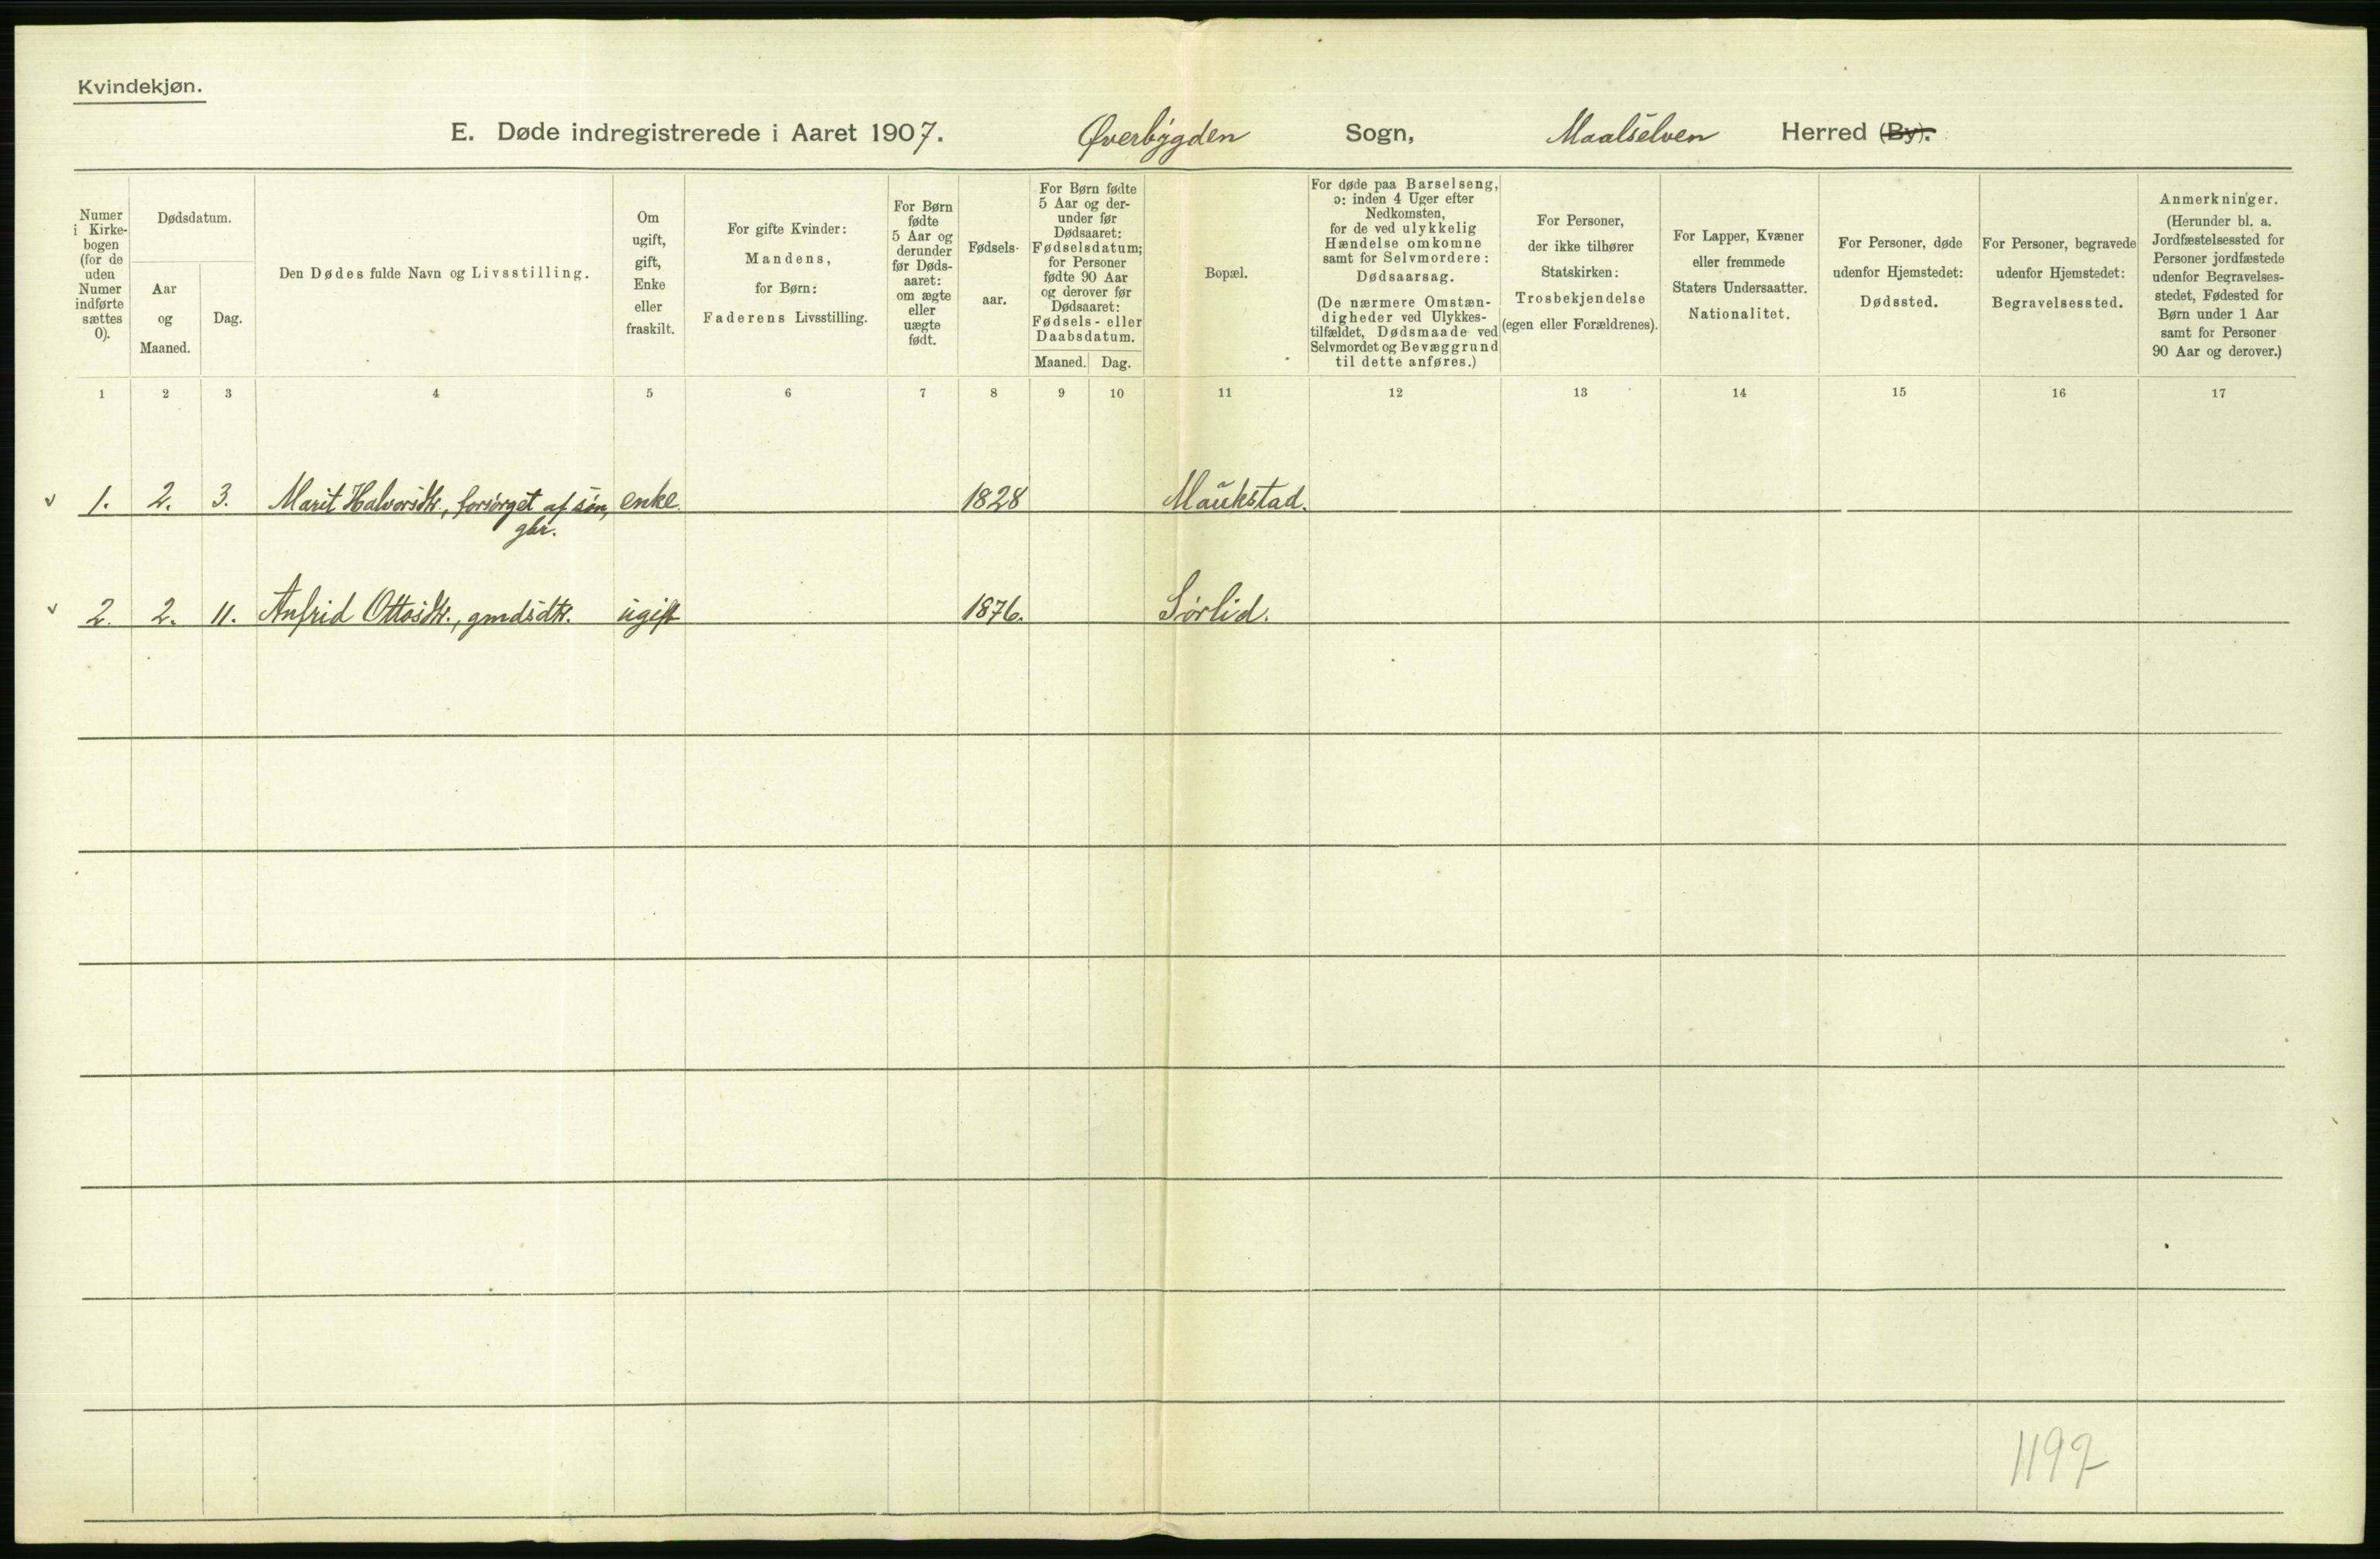 Kvindekjøn.
E. Døde indregistrerede i Aaret 1907. Øverbygden Sogn, Maalselven Herred (By).
Numer
i Kirke-
bogen
(for de
uden
Numer
indførte
sættes
0).
Dødsdatum.
Aar
og
Maaned.
Dag.
Den Dødes fulde Navn og Livsstilling.
Om
ugift,
gift,
Enke
eller
fraskilt.
For gifte Kvinder:
Mandens,
for Børn:
Faderens Livsstilling.
For Børn
fødte
5 Aar og
derunder
før Døds-
aaret:
om ægte
eller
uægte
født.
Fødsels-
aar.
For Børn fødte
5 Aar og der-
under før
Dødsaaret:
Fødselsdatum;
for Personer
fødte 90 Aar
og derover før
Dødsaaret:
Fødsels- eller
Daabsdatum.
Maaned. Dag.
Bopæl.
For døde paa Barselseng,
ɔ: inden 4 Uger efter
Nedkomsten,
for de ved ulykkelig
Hændelse omkomne
samt for Selvmordere:
Dødsaarsag.
(De nærmere Omstæn-
digheder ved Ulykkes-
tilfældet, Dødsmaade ved
Selvmordet og Bevæggrund
til dette anføres.)
For Personer,
der ikke tilhører
Statskirken:
Trosbekjendelse
(egen eller Forældrenes).
For Lapper, Kvæner
eller fremmede
Staters Undersaatter.
Nationalitet.
For Personer, døde
udenfor Hjemstedet:
Dødssted.
For Personer, begravede
udenfor Hjemstedet:
Begravelsessted.
Anmerkninger.
(Herunder bl. a.
Jordfæstelsessted for
Personer jordfæstede
udenfor Begravelses-
stedet, Fødested for
Børn under 1 Aar
samt for Personer
90 Aar og derover.)
1 2 3 4 5 6 7 8 9 10 11 12 13 14 15 16 17
v 1. 2. 3. Marit Halvorsdtr., forsørget af søn, enke. 1828 Maukstad.
gbr.
v 2. 2. 11. Anfrid Ottosdtr., gmdsdtr. ugift 1876. Sørlid.
1192